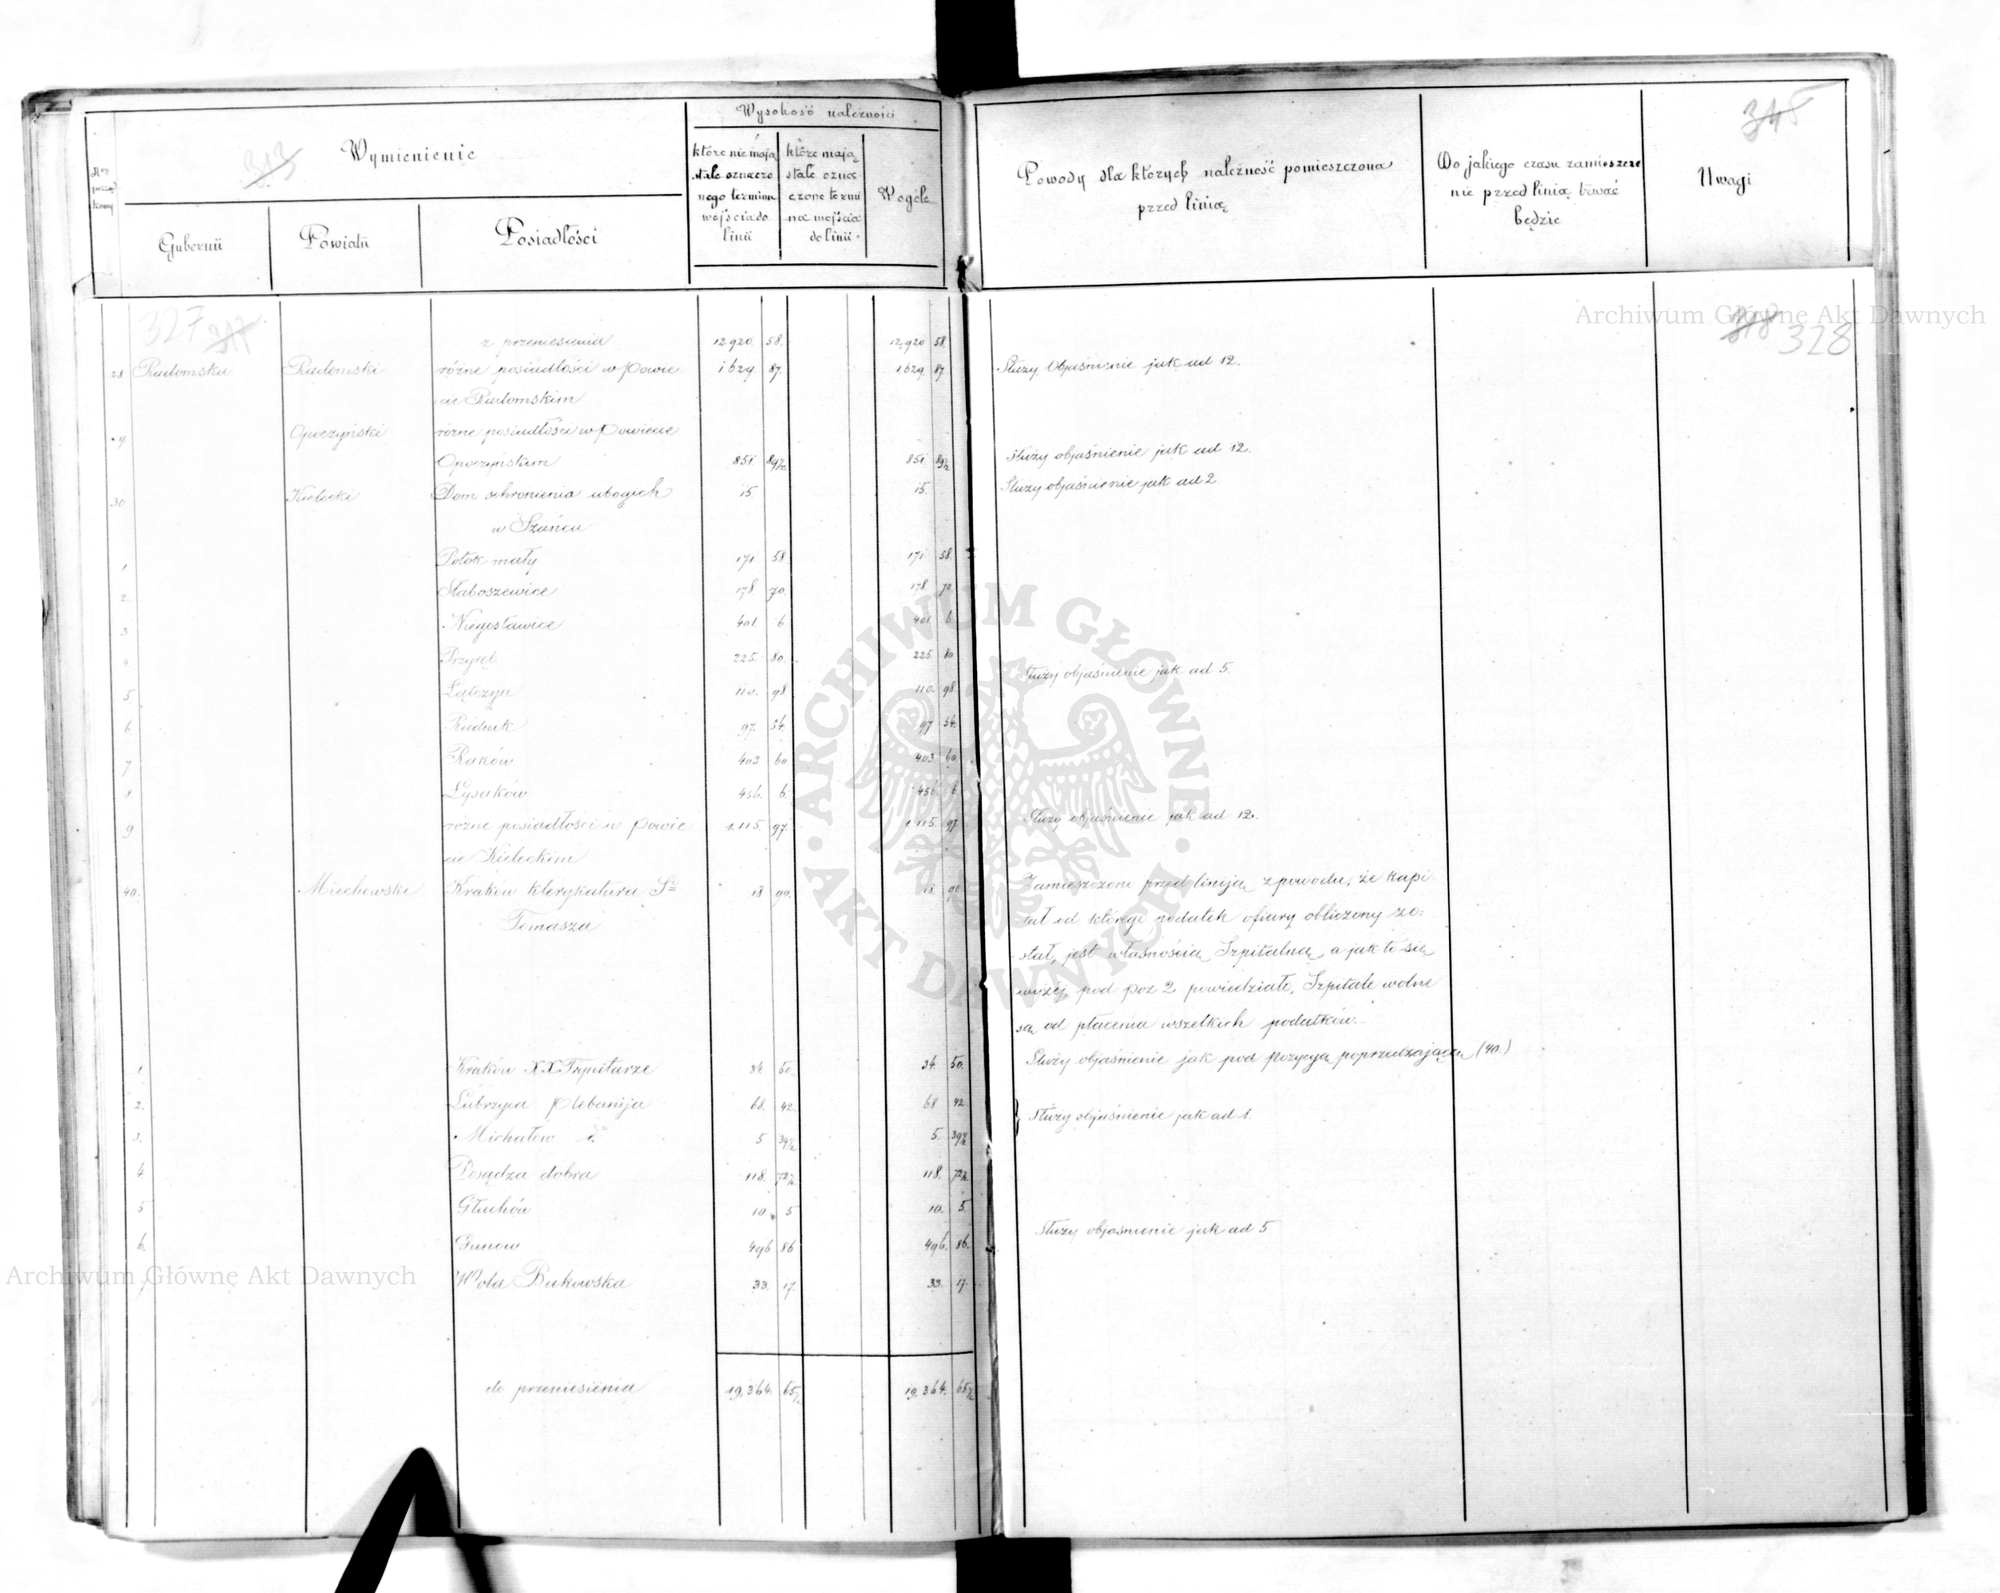 313
345
Wymienienie
Wysokość należności
Gubernii
Powiatu
Posiadłości
które nie mają
stale oznaczo
nego terminu
wejścia do
linii
które mają
stale ozna-
czone termi
na wejścia
do linii.
Wogóle
Powody dla których należność pomieszczona
przed linią
Do jakiego czasu zamieszcze
nie przed linią trwać
będzie
Uwagi
Archiwum Główne Akt Dawnych
327 317
318 328
z przeniesienia 12920. 58. 12,920 58.
28 Radomska Radomski różne posiadłości w powie 1629. 87. 1629. 87. Służy Objaśnienie jak ad 12.
cie Radomskim
9 Opoczyński różne posiadłości w Powiecie
Opoczyńskim 851 89½ 851. 89½ Służy objaśnienie jak ad 12.
30 Kielecki Dom schronienia ubogich 15 15. Służy objaśnienie jak ad 2.
w Szańcu
1 Potok mały 171 58. 171. 58
2. Słaboszewice 178 70. 178. 70
3 Niegosławice 401 6 401. 6
4 Przyłęk 225. 80. 225. 80 Służy objaśnienie jak ad 5.
5 Łątczyn 110. 98 110. 98.
6 Rudnik 97. 54. 97 54.
7 Raków 403. 60. 403. 60.
8. Łysaków 456. 6. 456 6
9 różne posiadłości w powie 1.115. 97. 1.115. 97 Służy objaśnienie jak ad 12.
cie Kieleckim
40. Miechowski Kraków klerykatura Sgo 18 90. 18. 90 Zamieszczone przed linija z powodu, że kapi-
Tomasza tał od którego podatek ofiary obliczony zo-
stał, jest własnością Szpitalną, a jak to się
wyżej pod poz 2 powiedziało, Szpitale wolne
są od płacenia wszelkich podatków.
1 Kraków XX Szpitarze 34. 50. 34. 50. Służy objaśnienie jak pod pozycyą poprzedzającą (40.)
2. Lubrzyca plebanija 68. 42. 68 42 Służy objaśnienie jak ad 1.
3. Michałów 5 39½ 5. 39½
4 Posądza dobra 118. 72½ 118. 72½
5 Głuchów 10. 5 10. 5.
6. Gunow 496 86 496. 86. Służy objaśnienie jak ad 5
7 Wola Bukowska 33. 17. 33. 17.
Archiwum Główne Akt Dawnych
do przeniesienia 19,364. 65½ 19,364. 65½
ARCHIWUM GŁÓWNE
AKT DAWNYCH